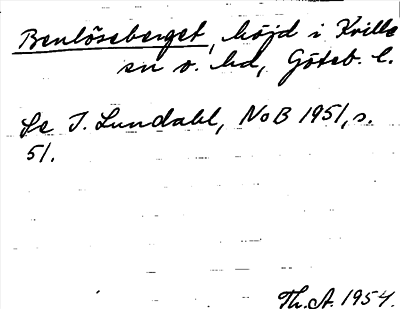 Benlöseberget, höjd i Kville
sn o. hd, Göteb. l.
Se I. Lundahl, NoB 1951, s.
51.
Th. A. 1954.